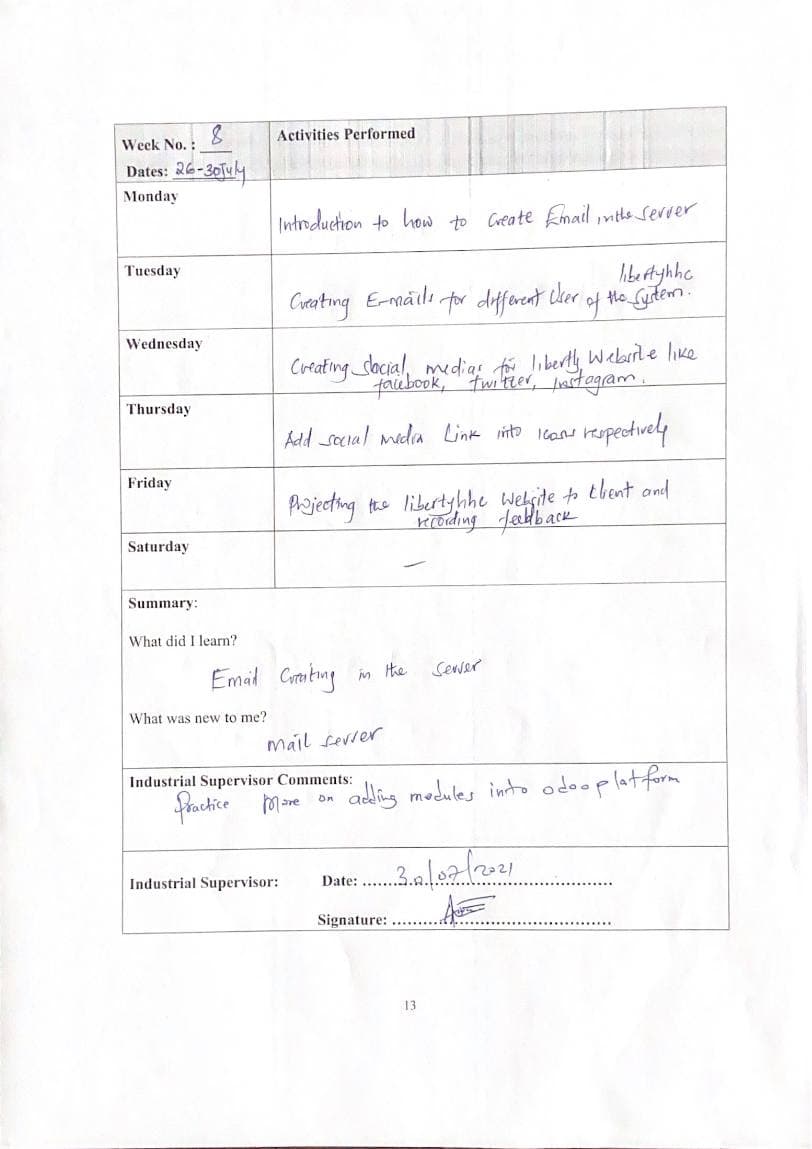 Week No. : 8
Activities Performed
Dates: 26-30July
Monday
Introduction to how to Create Email in the Server
Tuesday
libertyhhc
Creating E-mails for different User of the System.
Wednesday
Creating Social medias for liberty Website like
facebook, twitter, Instagram.
Thursday
Add social media Link into Icons respectively
Friday
Projecting the libertyhhc Website to Client and
recording feedback
Saturday
—
Summary:
What did I learn?
Email Creating in the server
What was new to me?
Mail server
Industrial Supervisor Comments:
Practice More on adding modules into odoo platform
Industrial Supervisor:
Date: ......30/07/2021
Signature: ..........
13